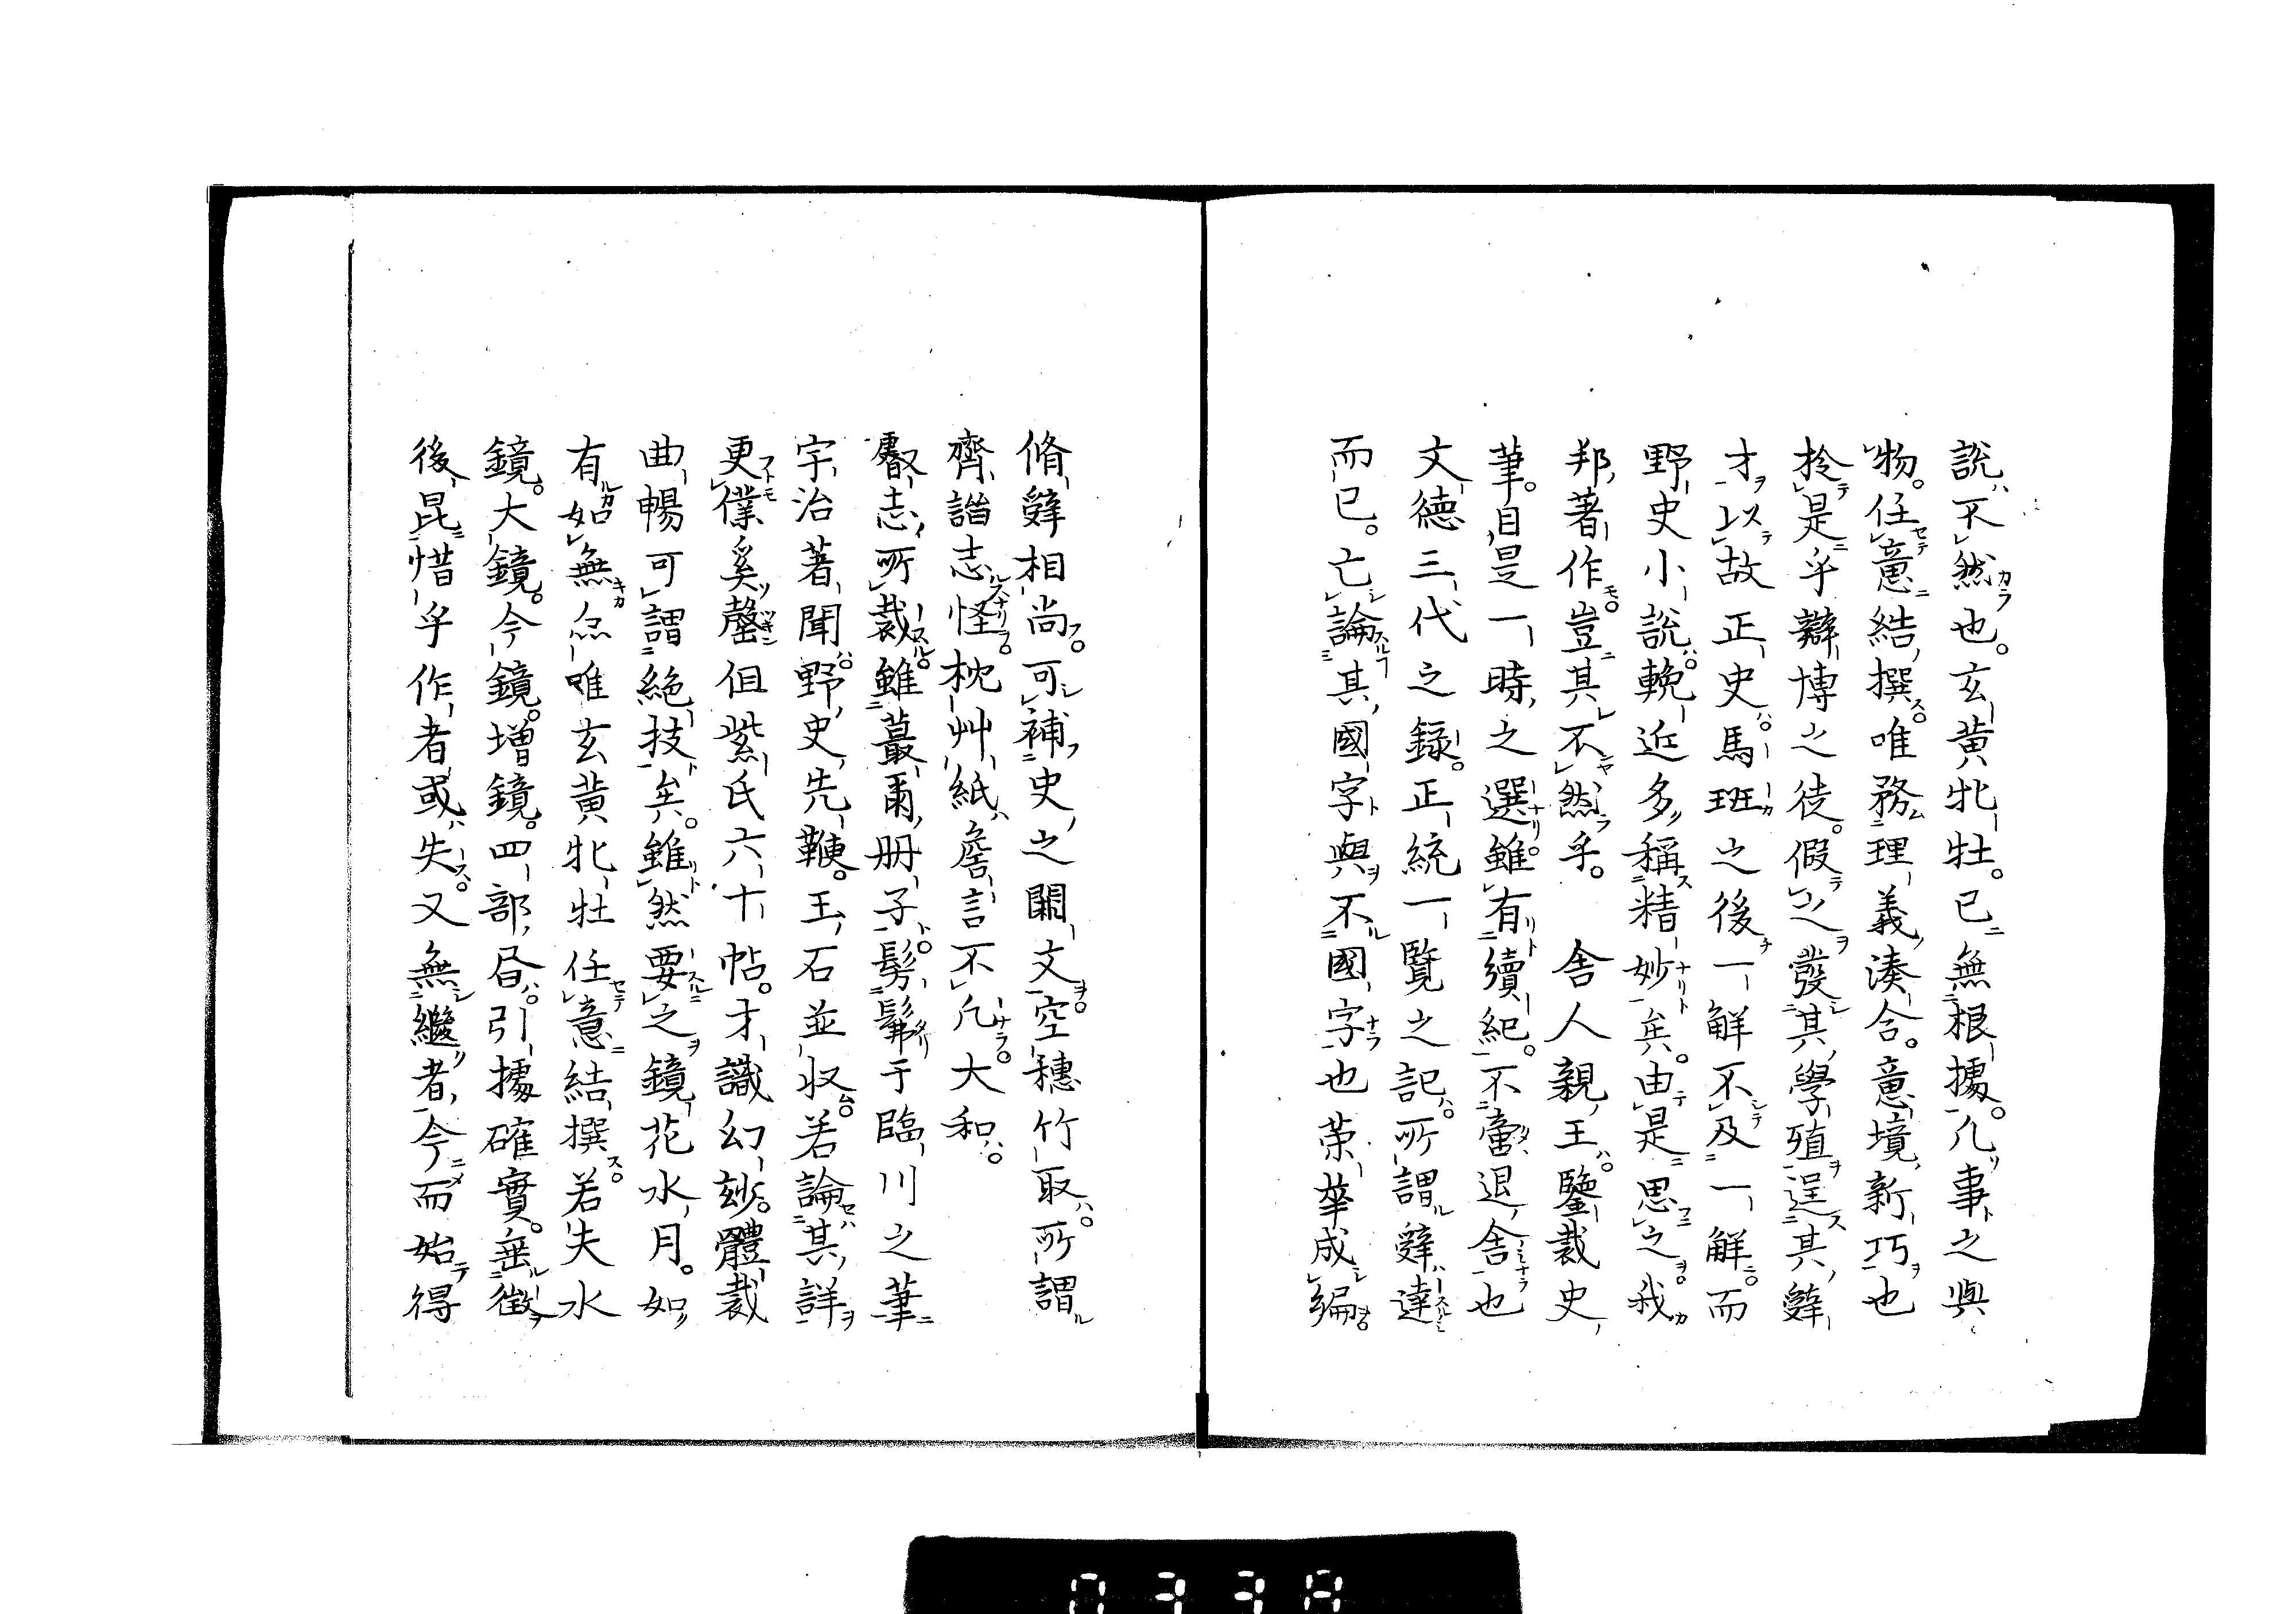 說不然也。玄黃牝牡。已無根據。凡事之與
物。任意結撰唯務理義湊合。意境新巧也
於是乎辯博之徒。假之發其學殖逞其辭
才以故正史馬班之後一解不及一解而
野史小說輓近多稱精妙矣。由是思之我
邦著作豈其不然乎。 舍人親王鑒裁史
筆。自是一時之選雖有續紀。不啻退舍也
文德三代之錄。正統一覽之記。所謂辭達
而已。亡論其國字與不國字也榮華成編
脩辭相尚。可補史之闕文空穗竹取。所謂
齊諧志怪枕艸紙詹言不凡。大和。
志所裁雖蕞爾册子髣髴于臨川之筆
宇治著聞野史先鞭。王石並収。若論其詳
更僕奚罄但紫氏六十帖。才識幻玅。體裁
曲暢可謂絕技矣。雖然要之鏡花水月。如
有如無尒唯玄黃牝牡任意結撰。若夫水
鏡。大鏡。今鏡。增鏡。四部。引據確實。垂徵
後昆惜乎作者或失又無繼者今而始得